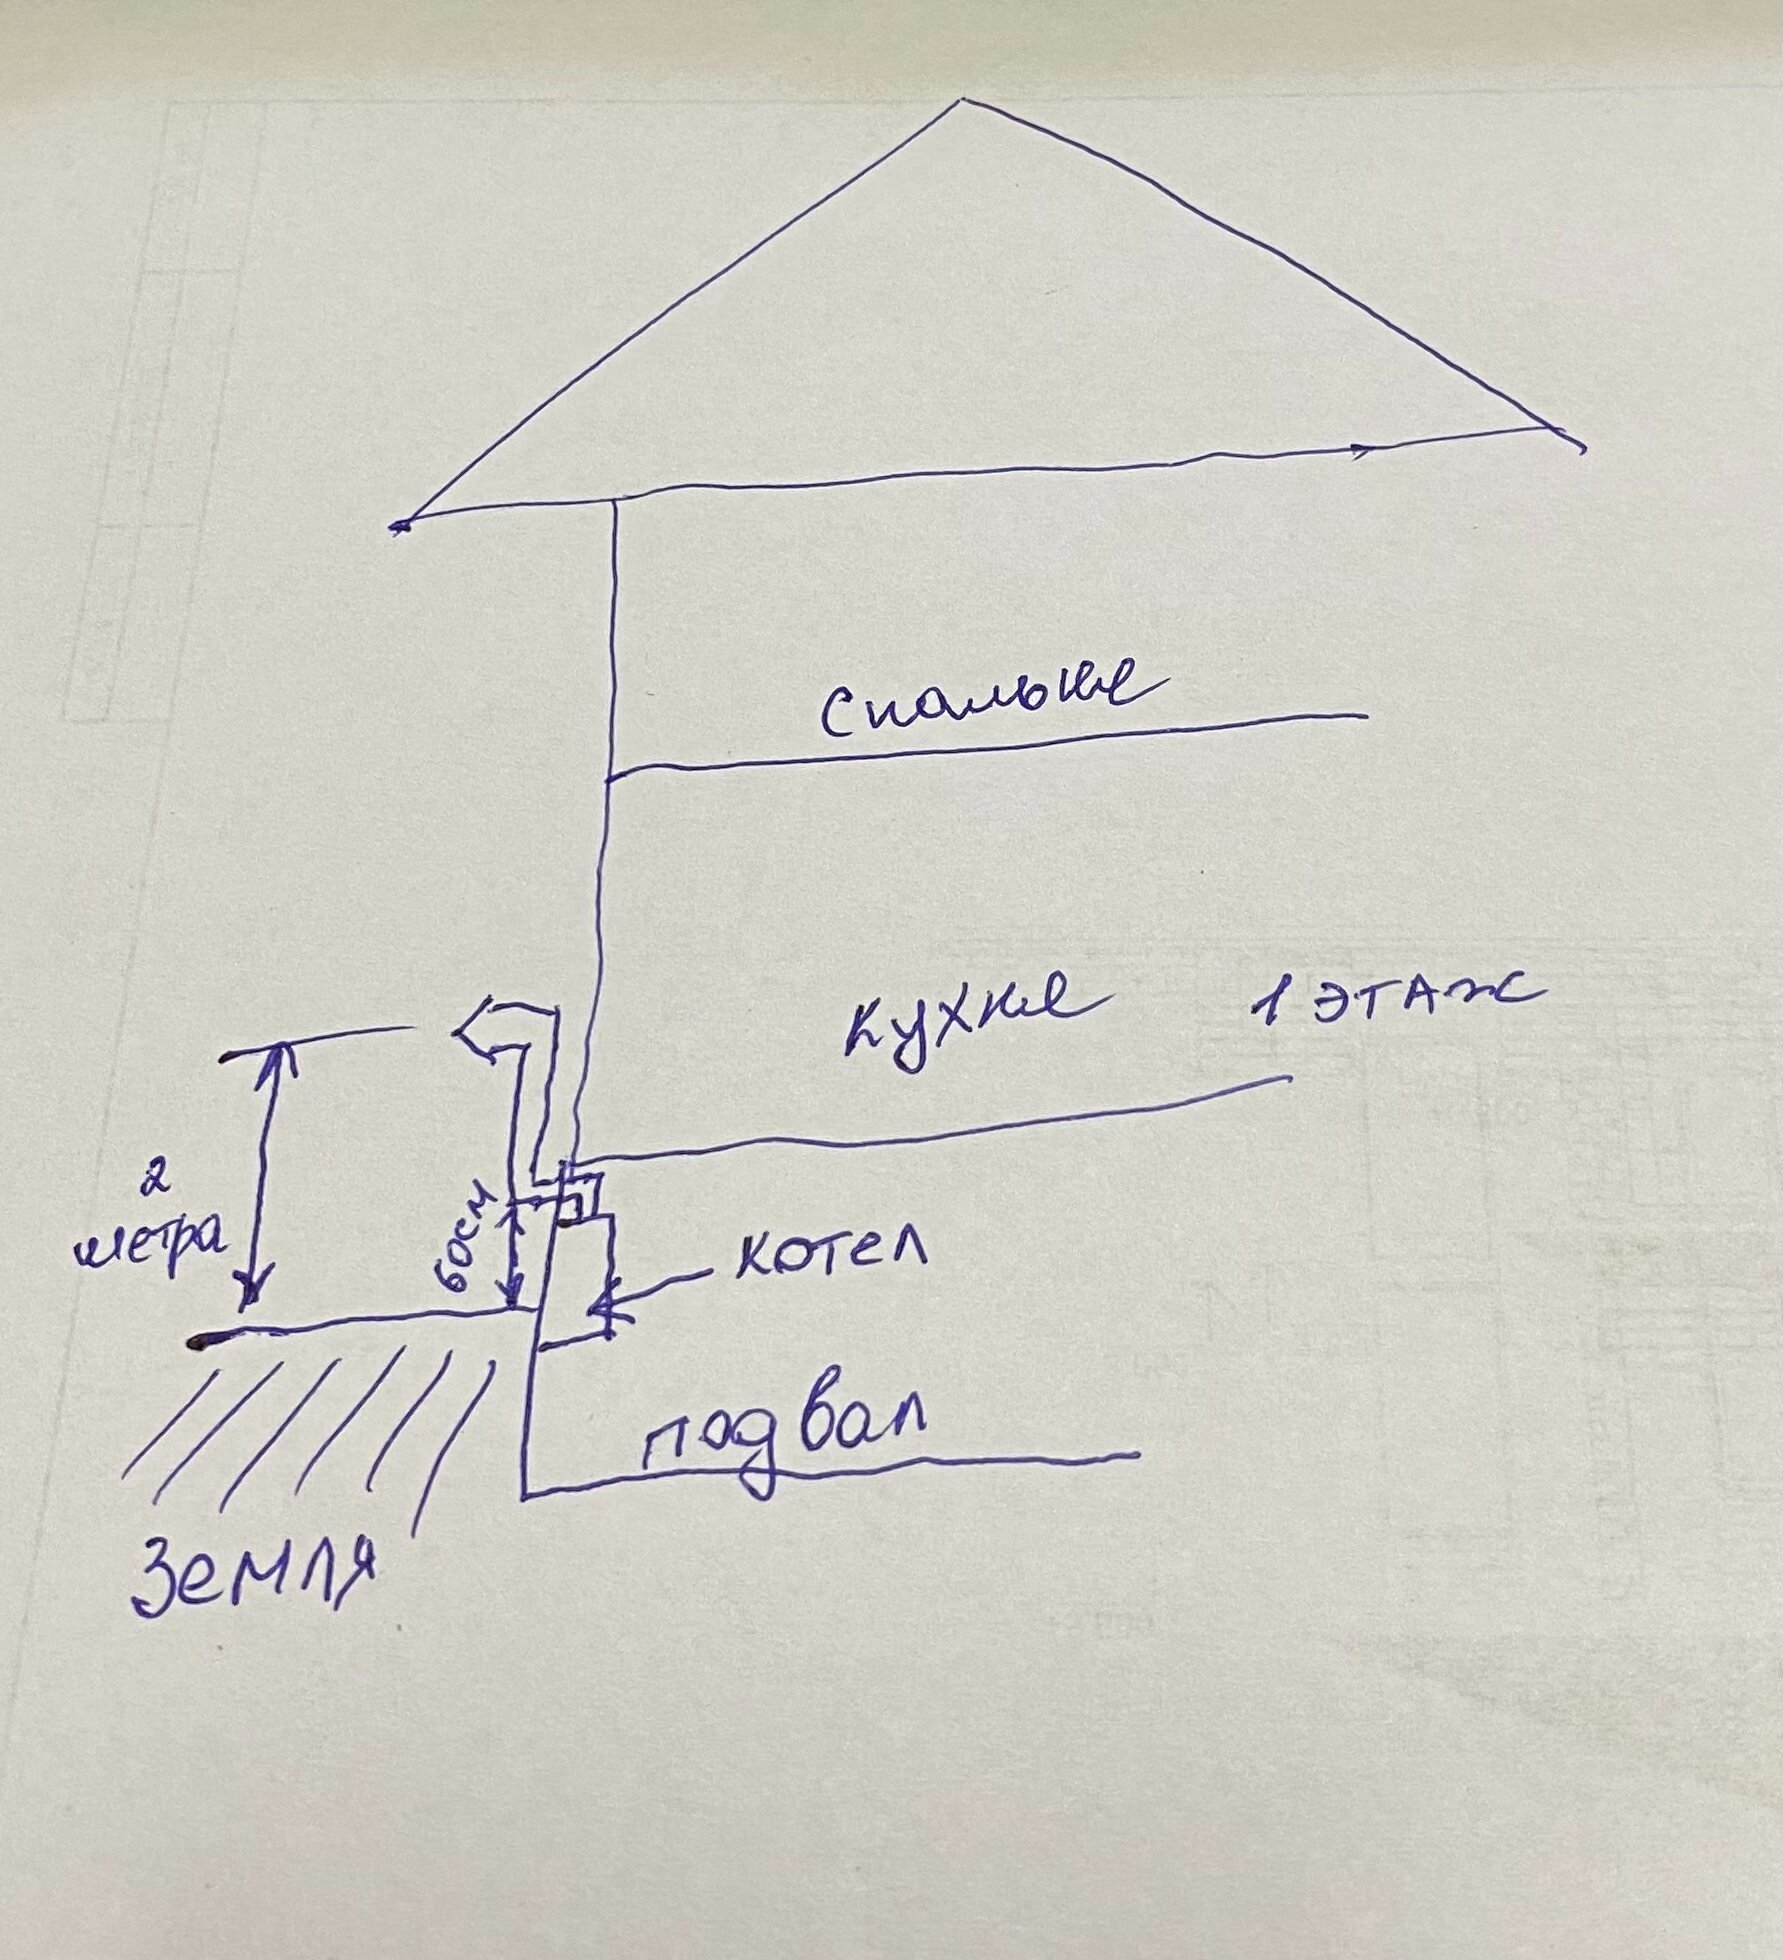 спальне
кухне 1 этаж
2
метра
60см
котел
подвал
земля